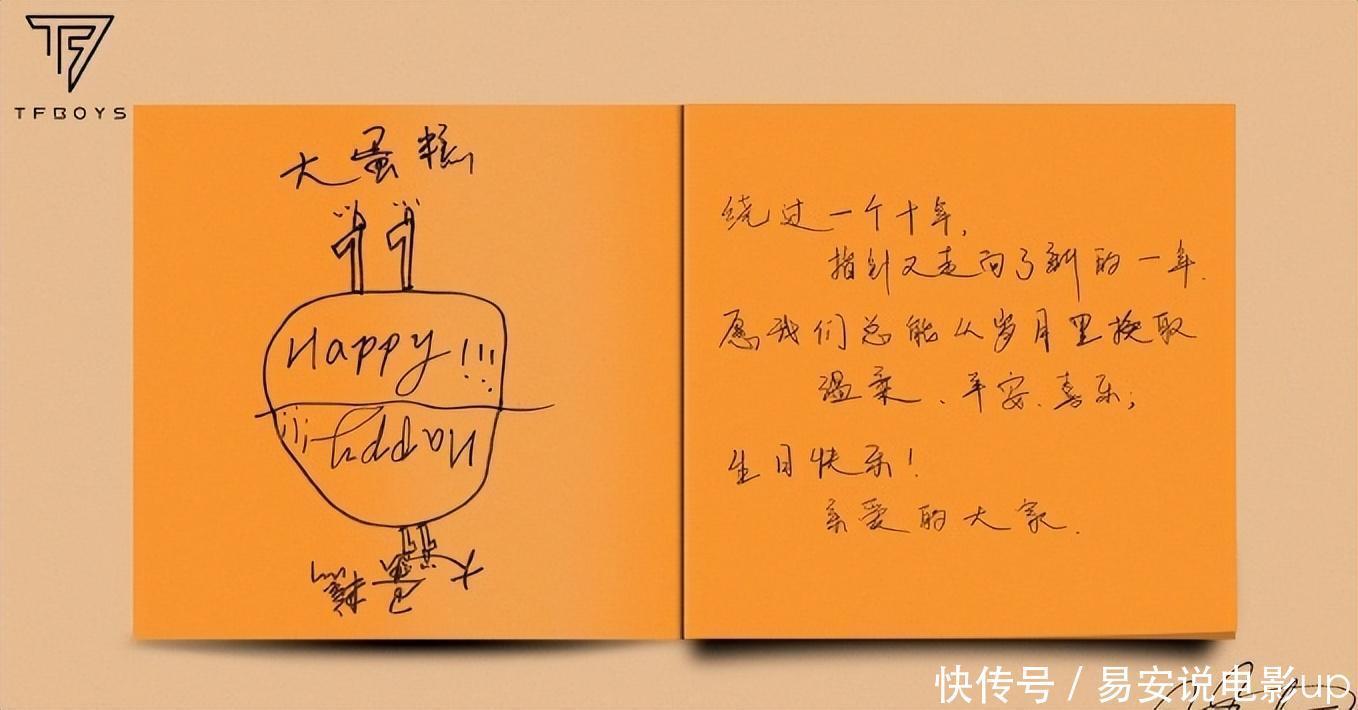 TFBOYS
大蛋糕
11
Happy!!!
Happy!!!
11
大蛋糕
绕过一个十年,
指针又走向了新的一年.
愿我们总能从岁月里换取
温柔、平安、喜乐;
生日快乐!
亲爱的大家.
快传号 / 易安说电影up